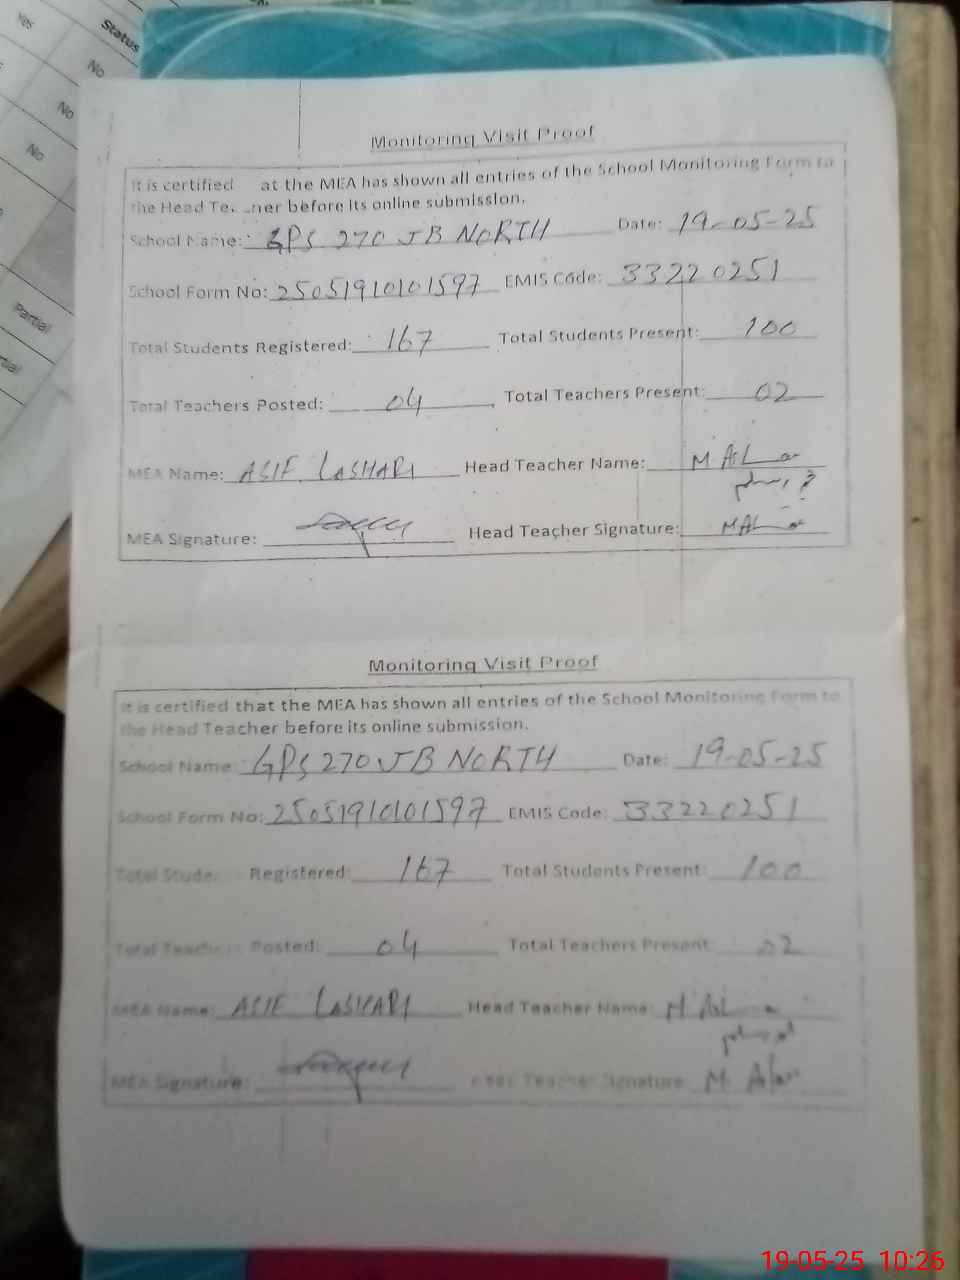 Yes
Status
No
No
No
Partial
Monitoring Visit Proof
It is certified at the MEA has shown all entries of the School Monitoring Form to
the Head Te ner before its online submission.
School Name: GPS 270 JB NORTH Date: 19-05-25
School Form No: 25051910101597 EMIS Code: 33220251
Total Students Registered: 167 Total Students Present: 100
Total Teachers Posted: 04 Total Teachers Present: 02
MEA Name: ASIF LASHARI Head Teacher Name: M
MEA Signature: Head Teacher Signature:
Monitoring Visit Proof
It is certified that the MEA has shown all entries of the School Monitoring Form to
the Head Teacher before its online submission.
School Name: GPS 270 JB NORTH Date: 19-05-25
School Form No: 25051910101597 EMIS Code: 33220251
Total Stude Registered: 167 Total Students Present: 100
Total Teache Posted: 04 Total Teachers Present: 02
MEA Name: ASIF LASHARI Head Teacher Name: M
MEA Signature: Head Teacher Signature: M.
19-05-25 10:26